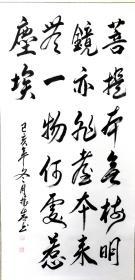 菩提本无樹明
鏡亦非臺本來
無一物何處惹
塵埃
己亥年冬月